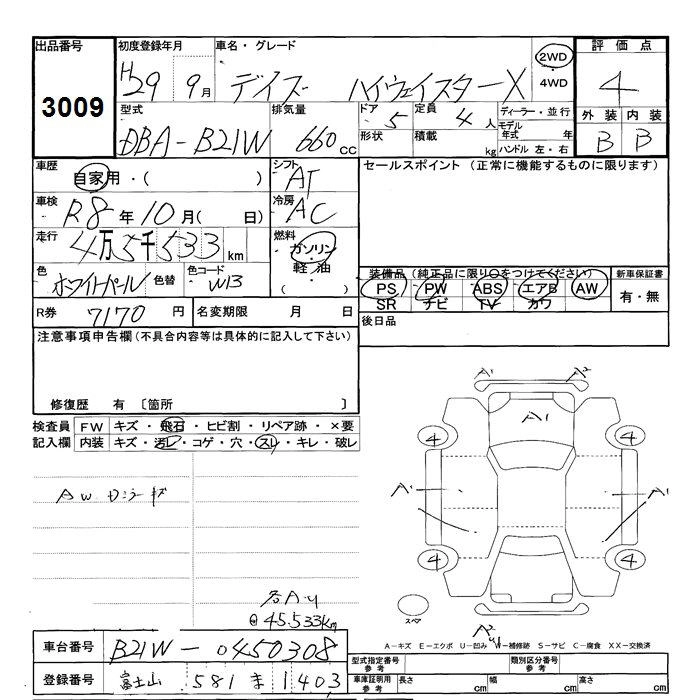 出品番号 初度登録年月 車名・グレード 評価点
3009 H29 9月 デイズ ハイウェイスターX 2WD 4WD 4
型式 排気量 ドア 定員 ディーラー・並行 外装 内装
DBA-B21W 660cc 5 4人 モデル年式 年 B B
形状 積載 kg ハンドル 左・右
車歴 自家用・( ) シフト AT セールスポイント(正常に機能するものに限ります)
車検 R8年10月( 日) 冷房 AC
走行 4万5千533km 燃料 ガソリン
軽油
( )
色 ホワイトパール 色替 色コード W13 装備品(純正品に限り○をつけてください) 新車保証書
PS PW ABS エアB AW 有・無
SR ナビ TV カワ
R券 7170円 名変期限 月 日 後日品
注意事項申告欄(不具合内容等は具体的に記入して下さい)
修復歴 有 〔箇所 〕
検査員 FW キズ・飛石・ヒビ割・リペア跡・×要
記入欄 内装 キズ・汚レ・コゲ・穴・スレ・キレ・破レ
A1 A2
A1
4 4
AW キズ
A1 A1
4 4
各A.U
@45.533km
スペア
A2
A-キズ E-エクボ U-凹み W-補修跡 S-サビ C-腐食 XX-交換済
車台番号 B21W-0450308
型式指定番号 参考 類別区分番号 参考
登録番号 富士山 581 ま 1403
車庫証明用 参考 長さ cm 幅 cm 高さ cm